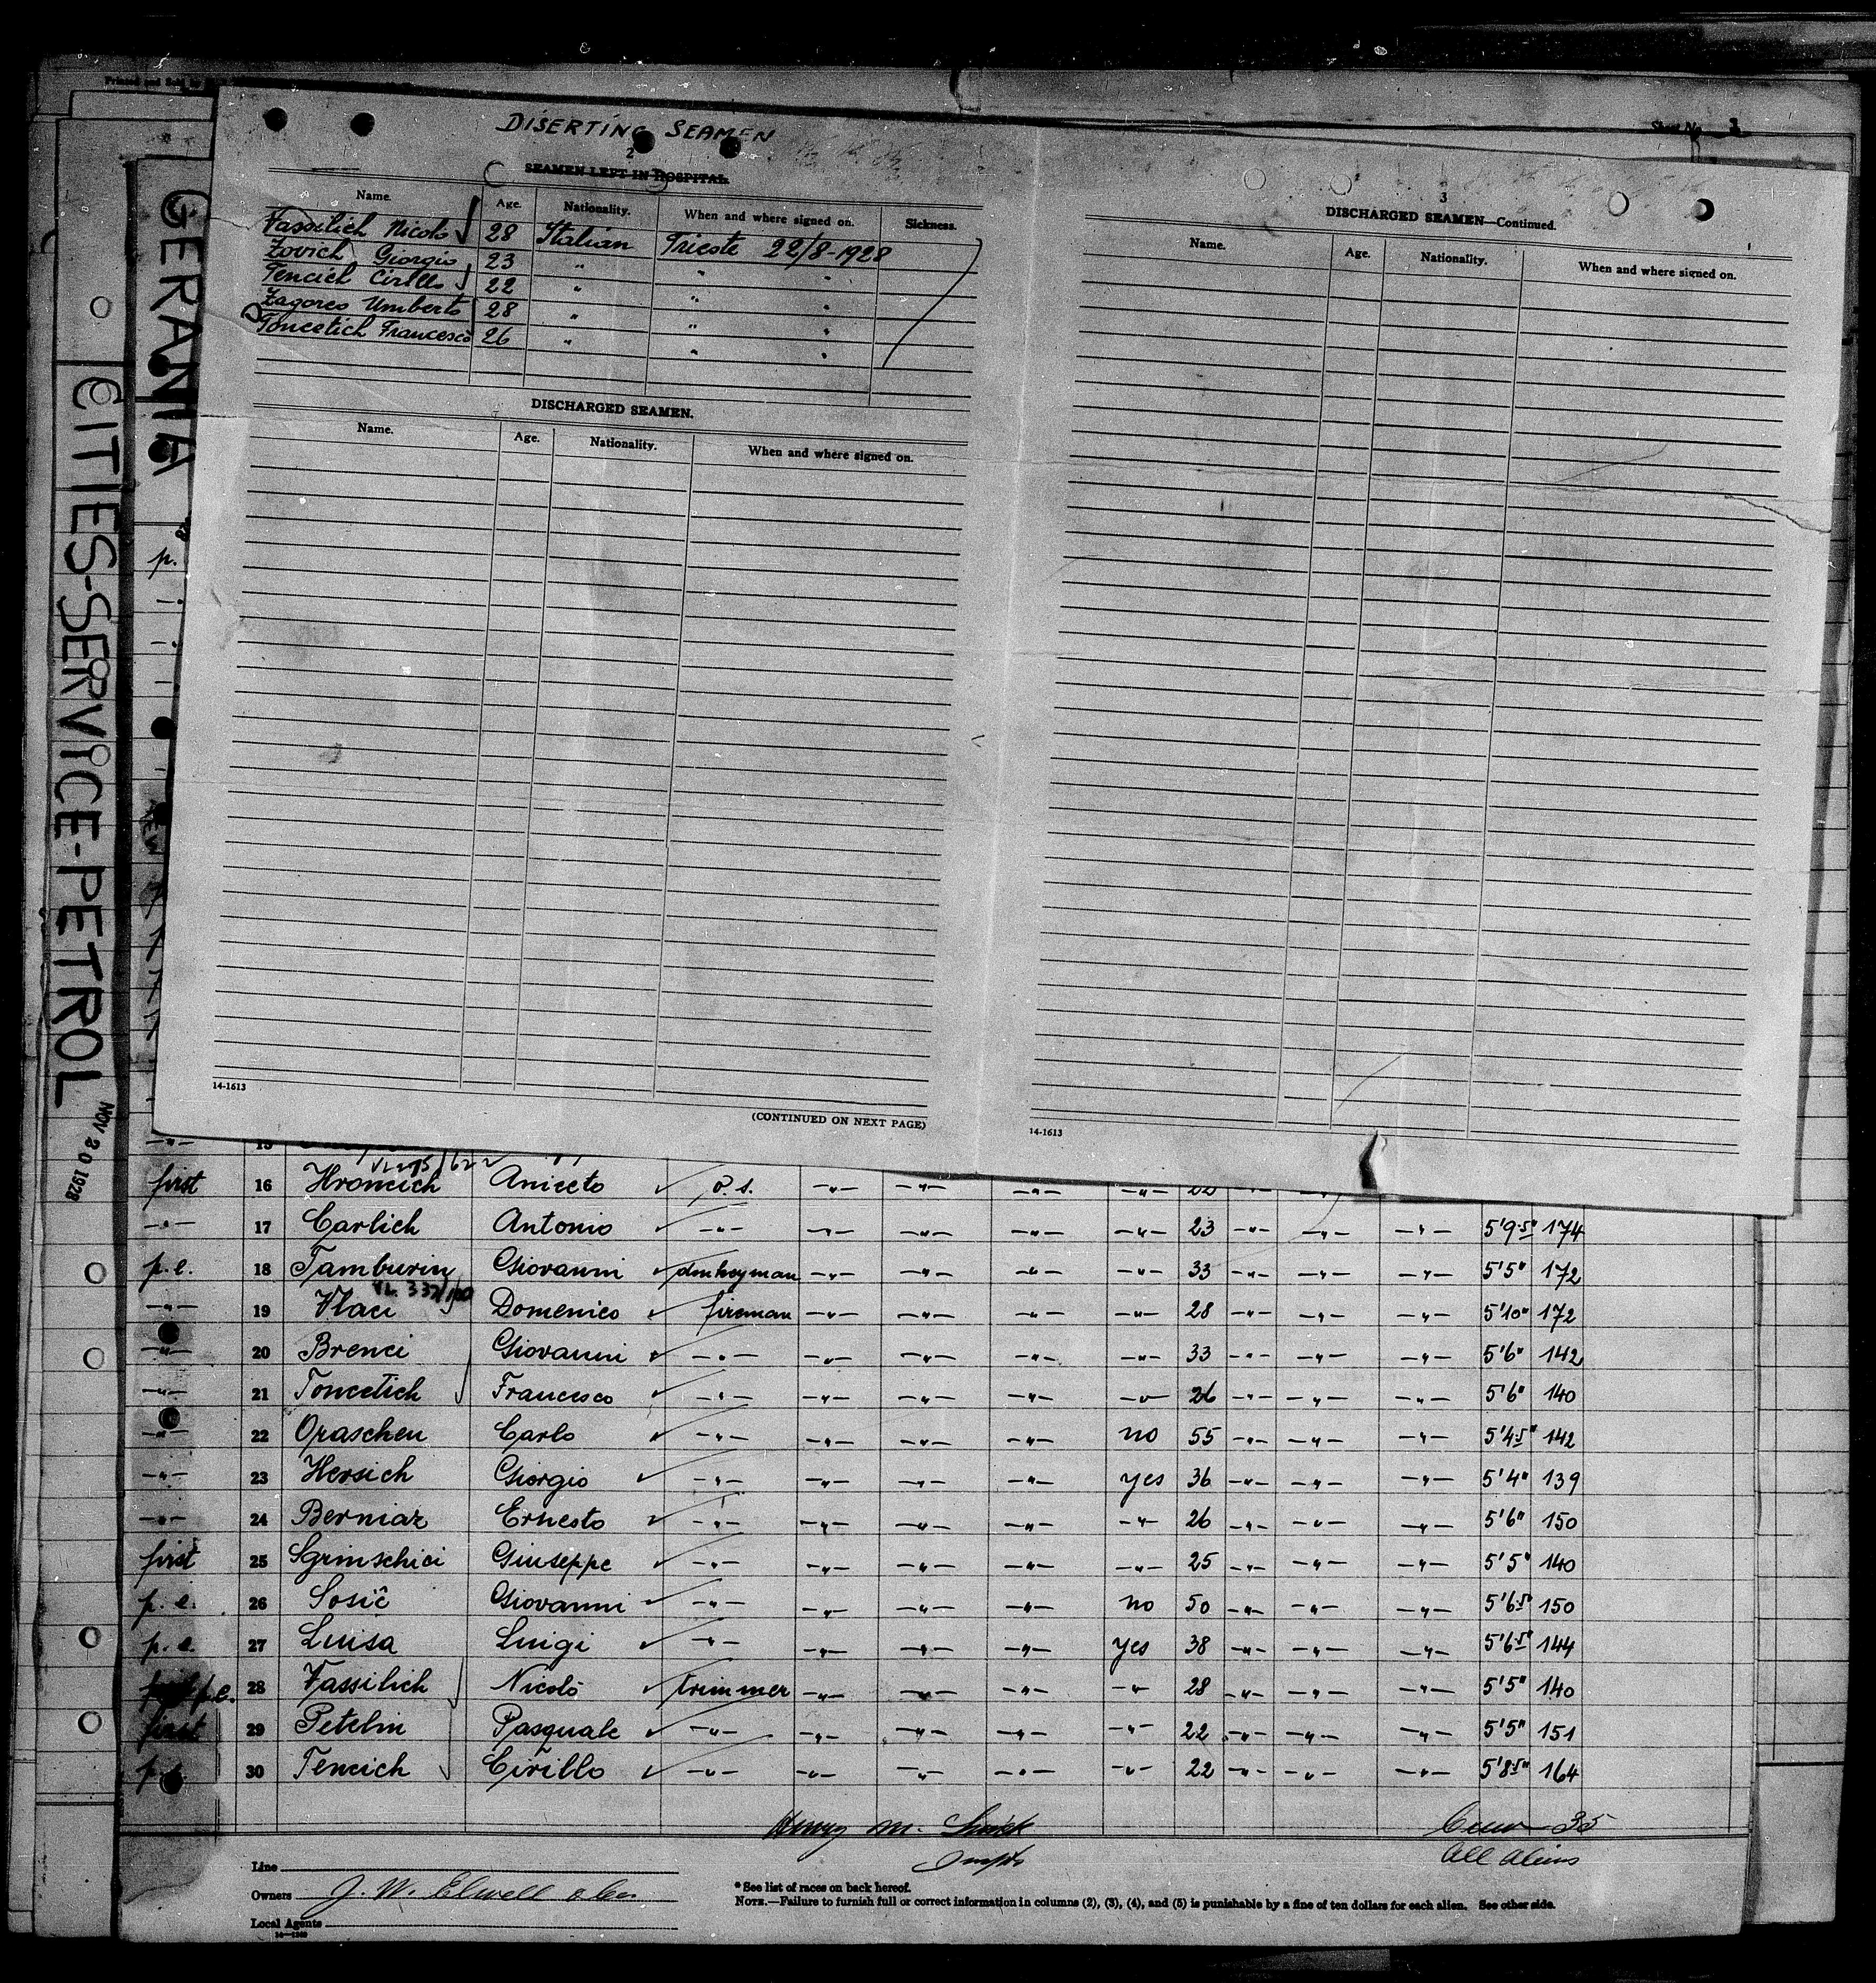 Printed and Sold by
Sheet No. 3
GERANIA
CITIES-SERVICE-PETROL
NOV 20 1928
DISERTING SEAMEN
2
SEAMEN LEFT IN HOSPITAL.
Name. Age. Nationality. When and where signed on. Sickness.
Vassilich Nicolo 28 Italian Trieste 22/8-1928
Zovich Giorgio 23 " " "
Tencich Cirillo 22 " " "
Zagoreo Umberto 28 " " "
Toncetich Francesco 26 " " "
DISCHARGED SEAMEN.
Name. Age. Nationality. When and where signed on.
14-1613
(CONTINUED ON NEXT PAGE)
3
DISCHARGED SEAMEN—Continued.
Name. Age. Nationality. When and where signed on.
14-1613
p.
15
first 16 Hroncich Aniceto o.s. -"- -"- -"- -"- 22 -"- -"- -"-
-"- 17 Carlich Antonio -"- -"- -"- -"- -"- 23 -"- -"- -"- 5'9.5" 174
p.e. 18 Tamburin Giovanni donkeyman -"- -"- -"- -"- 33 -"- -"- -"- 5'5" 172
-"- 19 Vlaci Domenico fireman -"- -"- -"- -"- 28 -"- -"- -"- 5'10" 172
-"- 20 Brenci Giovanni -"- -"- -"- -"- -"- 33 -"- -"- -"- 5'6" 142
-"- 21 Toncetich Francesco -"- -"- -"- -"- -"- 26 -"- -"- -"- 5'6" 140
-"- 22 Opaschen Carlo -"- -"- -"- -"- no 55 -"- -"- -"- 5'4.5" 142
-"- 23 Hersich Giorgio -"- -"- -"- -"- yes 36 -"- -"- -"- 5'4" 139
-"- 24 Berniaz Ernesto -"- -"- -"- -"- -"- 26 -"- -"- -"- 5'6" 150
first 25 Sgrinschici Giuseppe -"- -"- -"- -"- -"- 25 -"- -"- -"- 5'5" 140
p.e. 26 Sosič Giovanni -"- -"- -"- -"- no 50 -"- -"- -"- 5'6.5" 150
p.e. 27 Luisa Luigi -"- -"- -"- -"- yes 38 -"- -"- -"- 5'6.5" 144
p.e. 28 Vassilich Nicolò trimmer -"- -"- -"- -"- 28 -"- -"- -"- 5'5" 140
first 29 Petelin Pasquale -"- -"- -"- -"- -"- 22 -"- -"- -"- 5'5" 151
30 Tencich Cirillo -"- -"- -"- -"- -"- 22 -"- -"- -"- 5'8.5" 164
Henry M.
Crew 35
All Aliens
Line
Owners J. W. Elwell & Co.
Local Agents
* See list of races on back hereof.
NOTE.—Failure to furnish full or correct information in columns (2), (3), (4), and (5) is punishable by a fine of ten dollars for each alien. See other side.